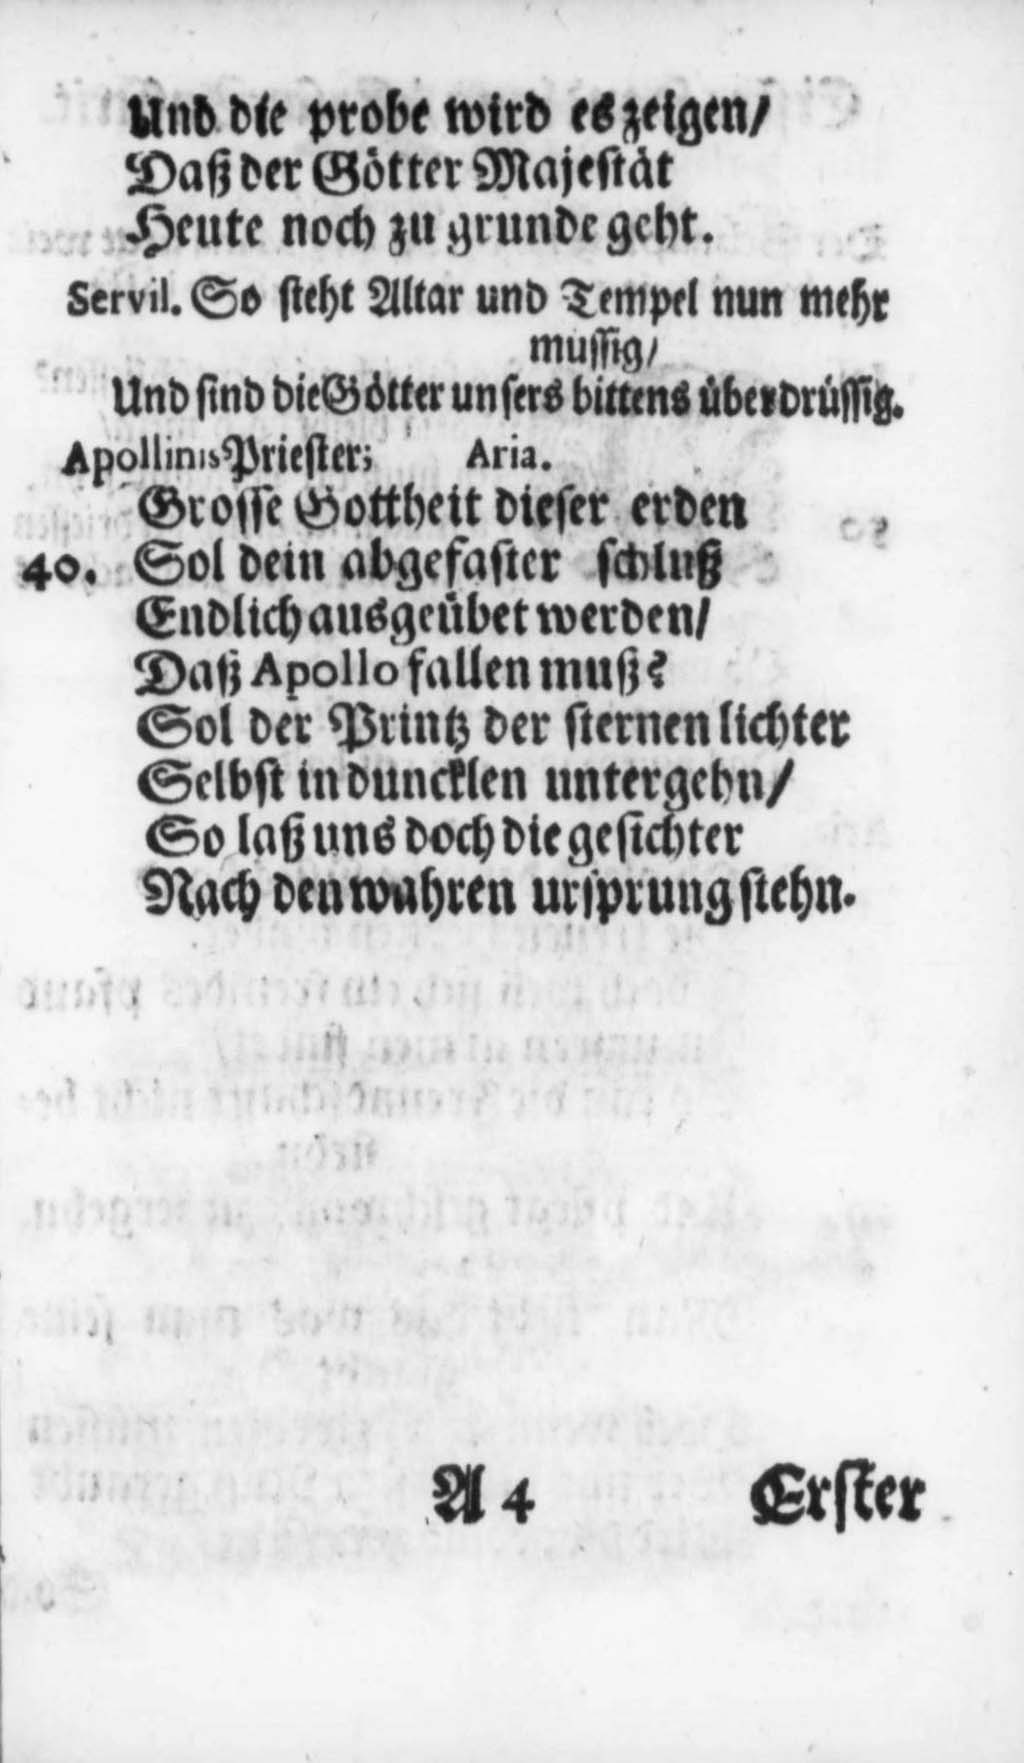 Und die probe wird es zeigen/
Daß der Götter Majestät
Heute noch zu grunde geht.
Servil. So steht Altar und Tempel nun mehr
mussig/
Und sind die Götter unsers bittens überdrüssig.
Apollinis Priester; Aria.
Grosse Gottheit dieser erden
40. Sol dein abgefaster schluß
Endlich ausgeübet werden/
Daß Apollo fallen muß?
Sol der Printz der sternen lichter
Selbst in duncklen untergehn/
So laß uns doch die gesichter
Nach den wahren ursprung stehn.
A 4 Erster